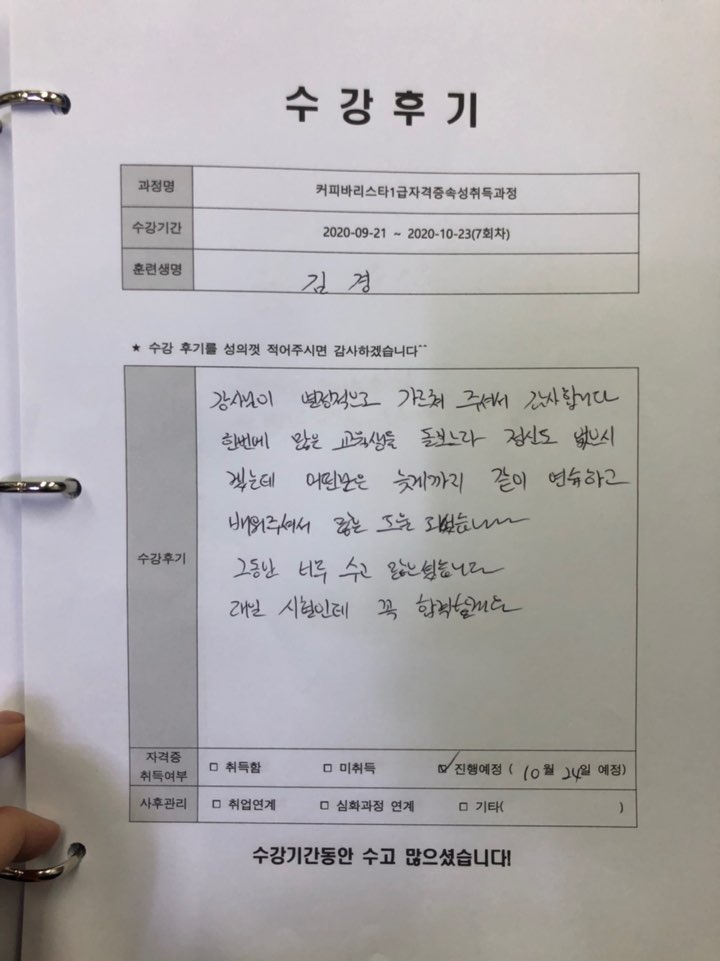 수강후기
과정명 커피바리스타1급자격증속성취득과정
수강기간 2020-09-21 ~ 2020-10-23(7회차)
훈련생명 김 경
★ 수강 후기를 성의껏 적어주시면 감사하겠습니다^^
강사님이 열정적으로 가르쳐 주셔서 감사합니다
한번에 많은 교육생을 돌보느라 정신도 없으시
겠는데 어떤날은 늦게까지 같이 연습하고
배워주셔서 많은 도움 되었습니다
그동안 너무 수고 많으셨습니다
수강후기
내일 시험인데 꼭 합격할게요
자격증 취득여부 □ 취득함 □ 미취득 ☑ 진행예정 ( 10월 24일 예정)
사후관리 □ 취업연계 □ 심화과정 연계 □ 기타( )
수강기간동안 수고 많으셨습니다!